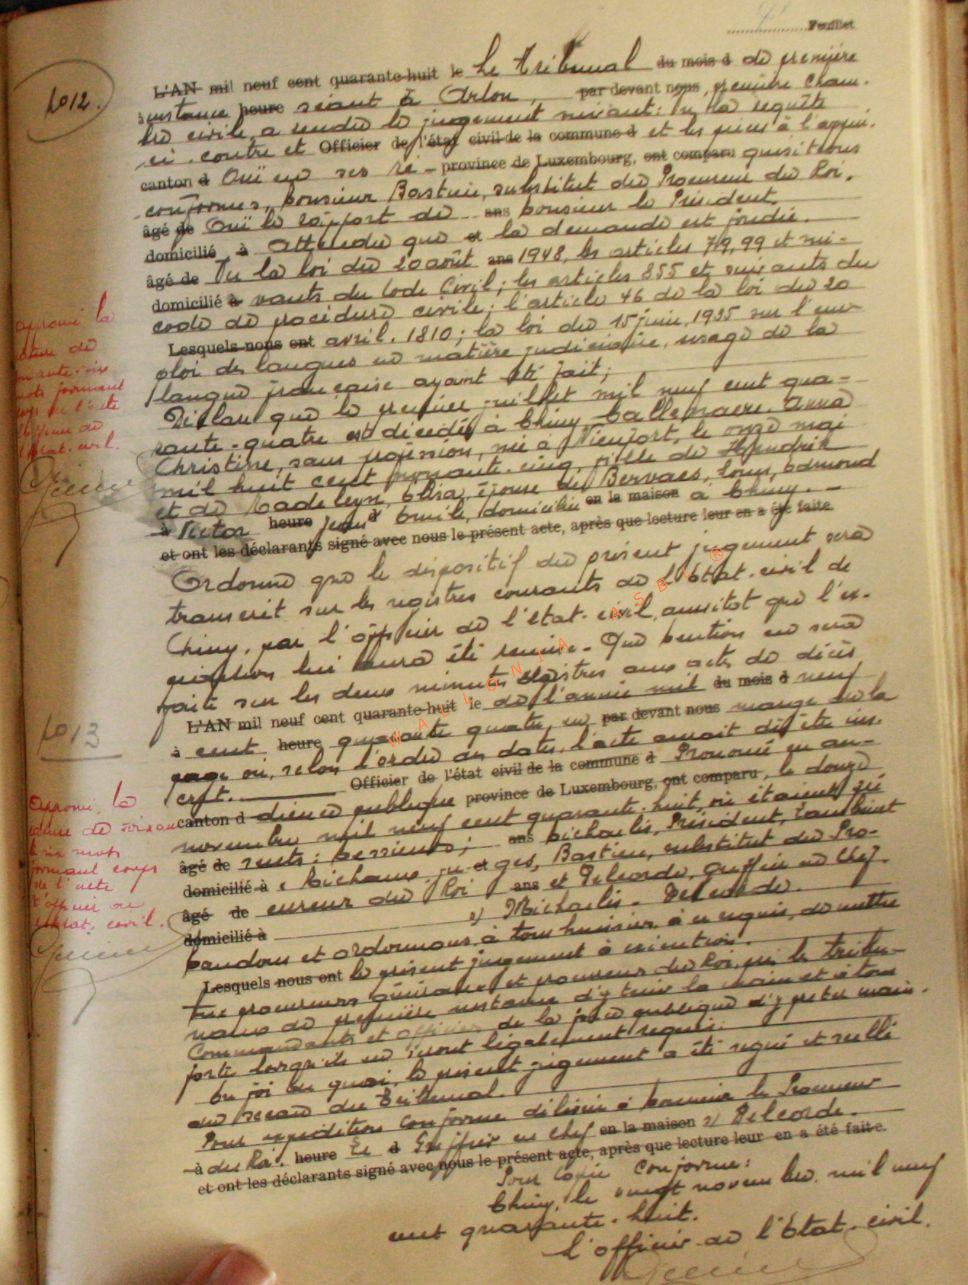 Feuillet
No 12.
L'AN mil neuf cent quarante-huit le Le Tribunal du mois d de première
instance heure séant à Arlon, par devant nous, première Cham-
bre civile, a rendu le jugement suivant: Vu la requête
ci-contre et Officier de l'état civil de la commune d et les pièces à l'appui.
canton d Ouï en ses ré- province de Luxembourg, ont comparu quisitions
conformes, Monsieur Bastin, substitut du Procureur du Roi.
âgé de Ouï le rapport de ans Monsieur le Président.
domicilié à Attendu que et la demande est fondée.
âgé de Vu la loi du 20 août ans 1948, les articles 719, 99 et sui-
domicilié à vants du Code Civil; les articles 855 et suivants du
code de procédure civile; l'article 46 de la loi du 20
Lesquels nous ont avril 1810; la loi du 15 juin 1935 sur l'em-
ploi des langues en matière judiciaire, usage de la
langue française ayant été fait;
Déclare que le premier juillet mil neuf cent qua-
rante-quatre est décédée à Chiny Callenaere, Anna
Christine, sans profession, née à Nieuport, le onze mai
mil huit cent nonante-cinq, fille de Hendrik
et de Madeleyn, Elisa, épouse de Bervaes, Louis, Edmond
à Victor heure Jean d Emile, domiciliée en la maison à Chiny.
et ont les déclarants signé avec nous le présent acte, après que lecture leur en a été faite.
Ordonne que le dispositif du présent jugement sera
transcrit sur les registres courants de l'Etat-civil de
Chiny, par l'officier de l'état-civil, aussitôt que l'ex-
pédition lui aura été remise. Que mention en sera
faite sur les deux minutes registres aux actes de décès
No 13
L'AN mil neuf cent quarante-huit le de l'année mil du mois d neuf
à cent heure quarante quatre, en par devant nous marge sur la
page où, selon l'ordre des dates, l'acte aurait dû être ins-
crit. Officier de l'état civil de la commune d Prononcé en au-
canton d dience publique province de Luxembourg, ont comparu, le douze
novembre mil neuf cent quarante-huit, où étaient pré-
âgé de sents: Messieurs; ans Michaelis, Président,
domicilié à Michaux, ju- et ges, Bastin, substitut du Pro-
âgé de cureur du Roi ans et Delcorde, Greffier en Chef.
domicilié à s) Michaelis - Delcorde
Mandons et ordonnons, à tous huissiers, à ce requis, de mettre
Lesquels nous ont le présent jugement à exécution.
procureurs généraux et procureurs du Roi, près les tribu-
naux de première instance d'y tenir la main et à tous
Commandants et officiers de la force publique d'y prêter main-
forte lorsqu'ils en seront légalement requis.
En foi de quoi, le présent jugement a été signé et scellé
du sceau du Tribunal.
Pour expédition conforme délivrée à Monsieur le Procureur
à du Roi. heure Le d Greffier en Chef en la maison s) Delcorde.
et ont les déclarants signé avec nous le présent acte, après que lecture leur en a été faite.
Pour Copie conforme:
Chiny, le vingt novembre mil neuf
cent quarante-huit.
L'officier de l'Etat-civil.